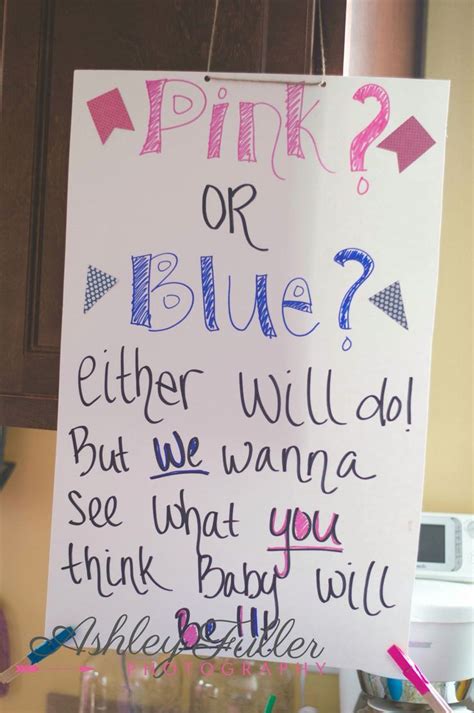 Pink?
OR
Blue?
either will do!
But we wanna
see what you
think Baby will
Be!!!
Ashley Fuller
PHOTOGRAPHY